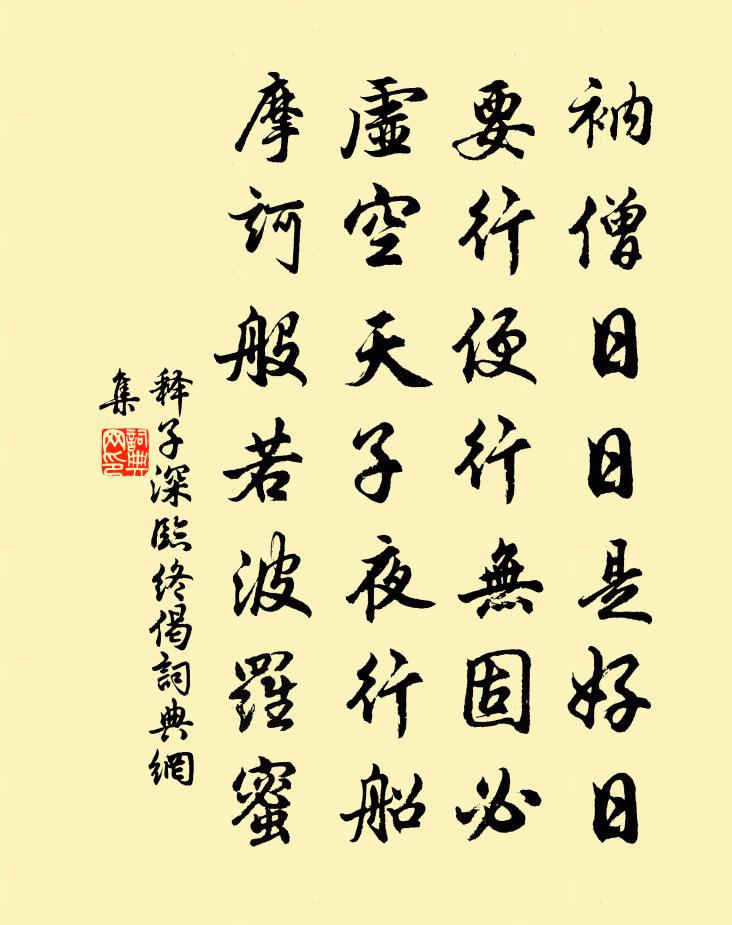 衲僧日日是好日
要行便行無固必
虛空天子夜行船
摩訶般若波羅蜜
释子深臨终偈詞典網
集
詞典
网印